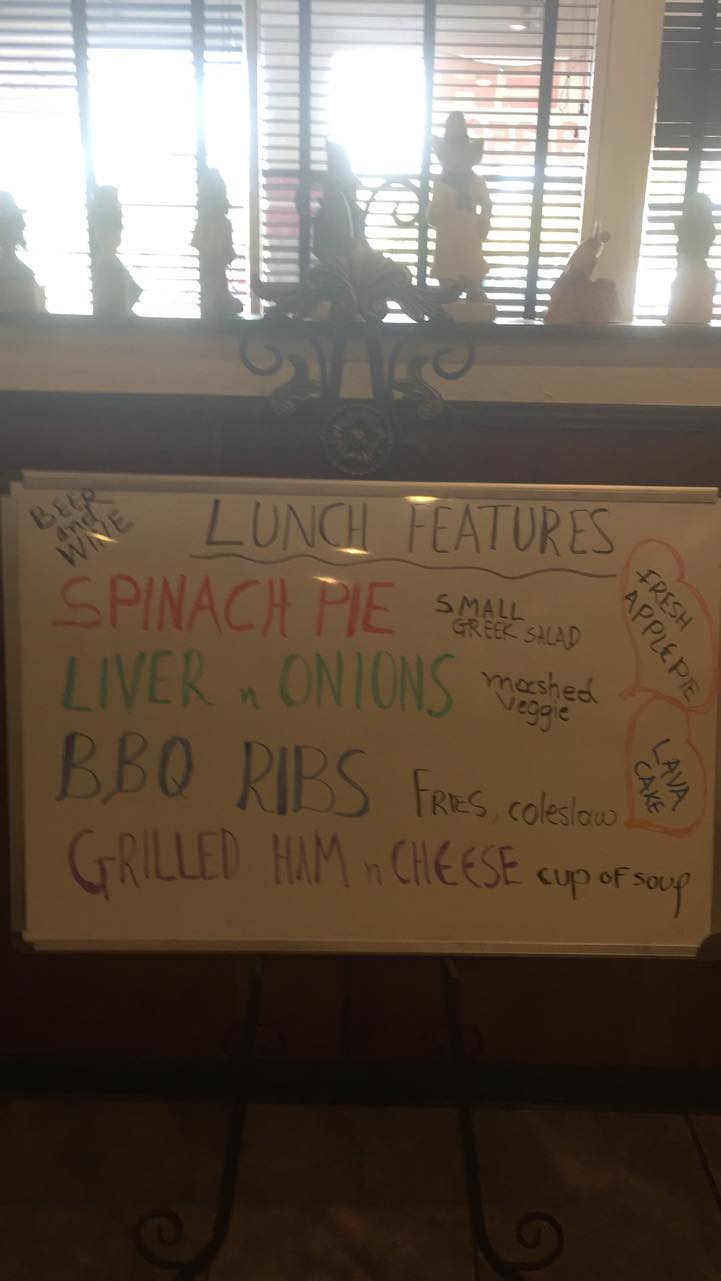 BEER
and
WINE
LUNCH FEATURES
SPINACH PIE SMALL
GREEK SALAD
LIVER n ONIONS mashed
veggie
BBQ RIBS FRIES, coleslaw
GRILLED HAM n CHEESE cup of soup
FRESH
APPLE PIE
LAVA
CAKE